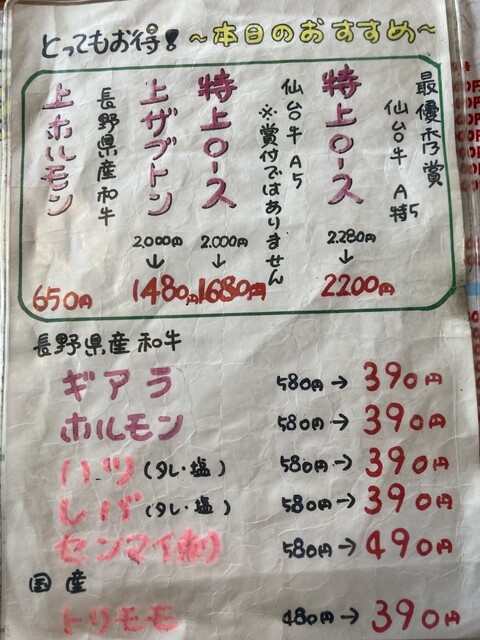 とってもお得! ～本日のおすすめ～
最優秀賞
仙台牛 A5
特上ロース
2,280円
↓
2200円
仙台牛 A5
※賞付ではありません
特上ロース
2,000円
↓
1680円
上ザブトン
2,000円
↓
1480円
長野県産和牛
上ホルモン
650円
長野県産和牛
ギアラ 580円→390円
ホルモン 580円→390円
ハツ (タレ・塩) 580円→390円
レバ (タレ・塩) 580円→390円
センマイ(刺) 580円→490円
国産
トリモモ 480円→390円